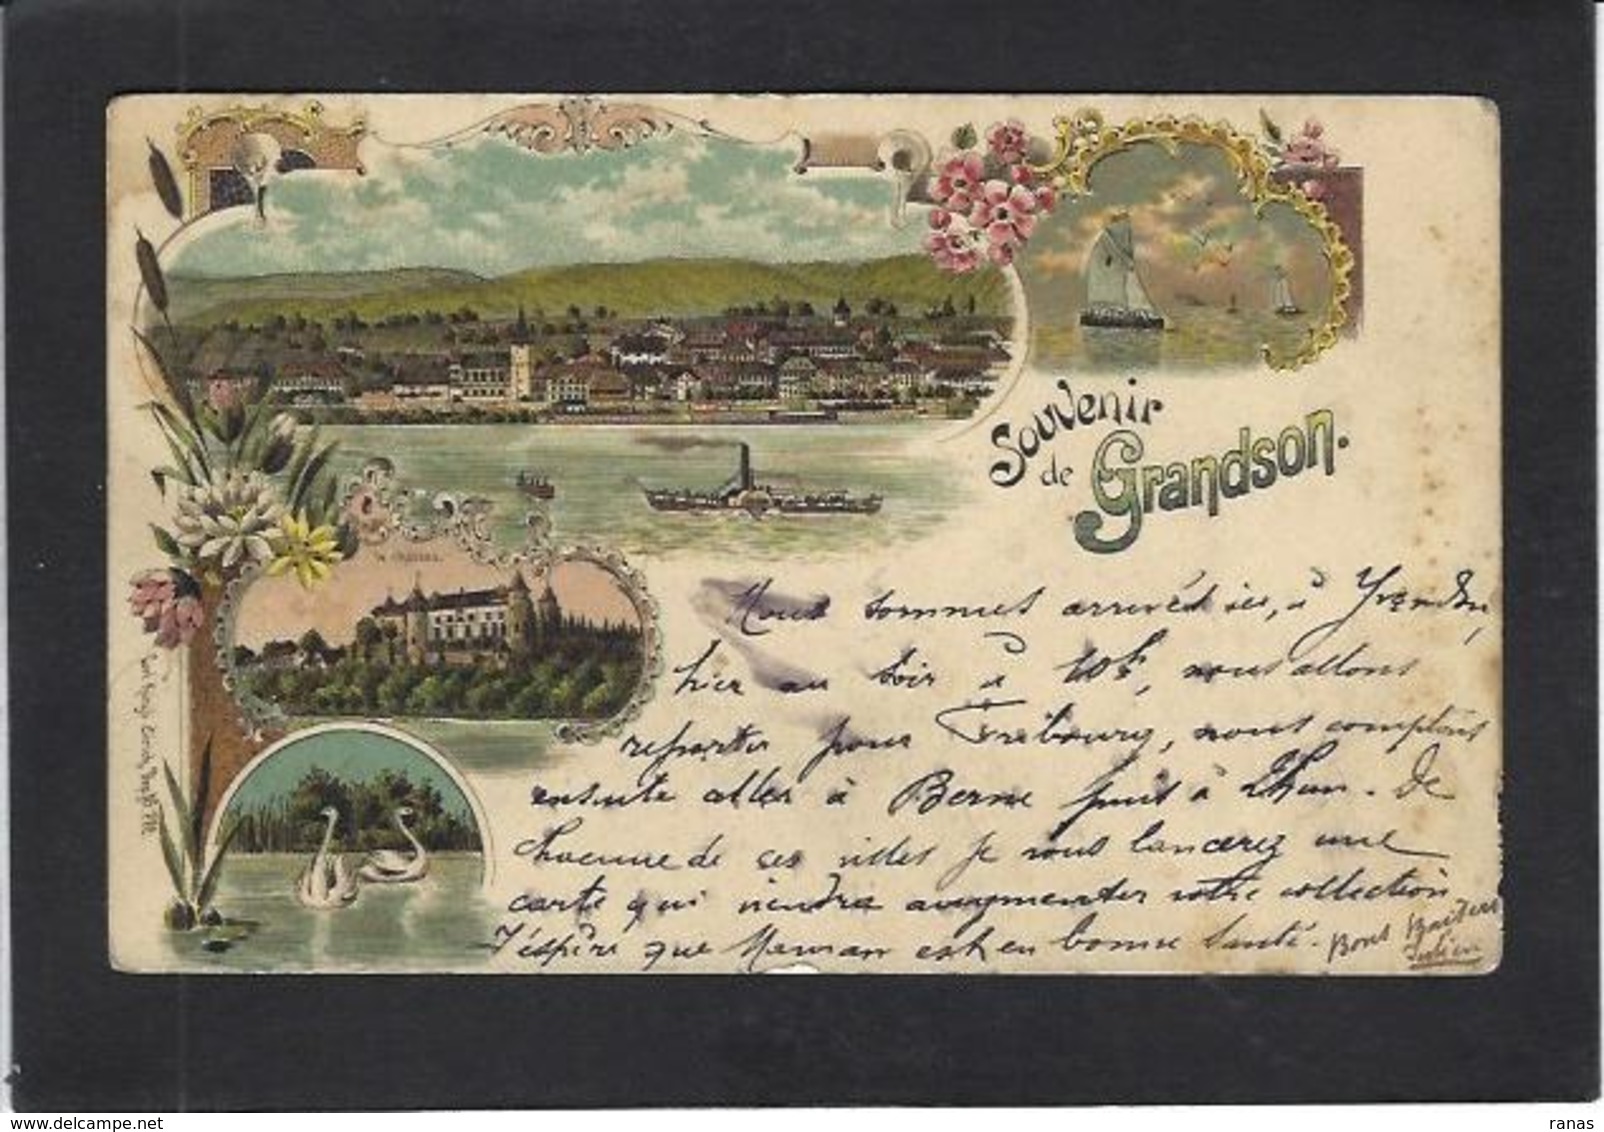 Souvenir
de Grandson.
Nous sommes arrivés ici, à Yverdon,
hier au soir à 10h, nous allons
repartir pour Fribourg, nous comptons
ensuite aller à Berne puis à Thun. De
chacune de ces villes je vous lancerez une
carte qui viendra augmenter votre collection
J'espère que Maman est en bonne santé. Bons Baisers
Julien
www.delcampe.net
ranas